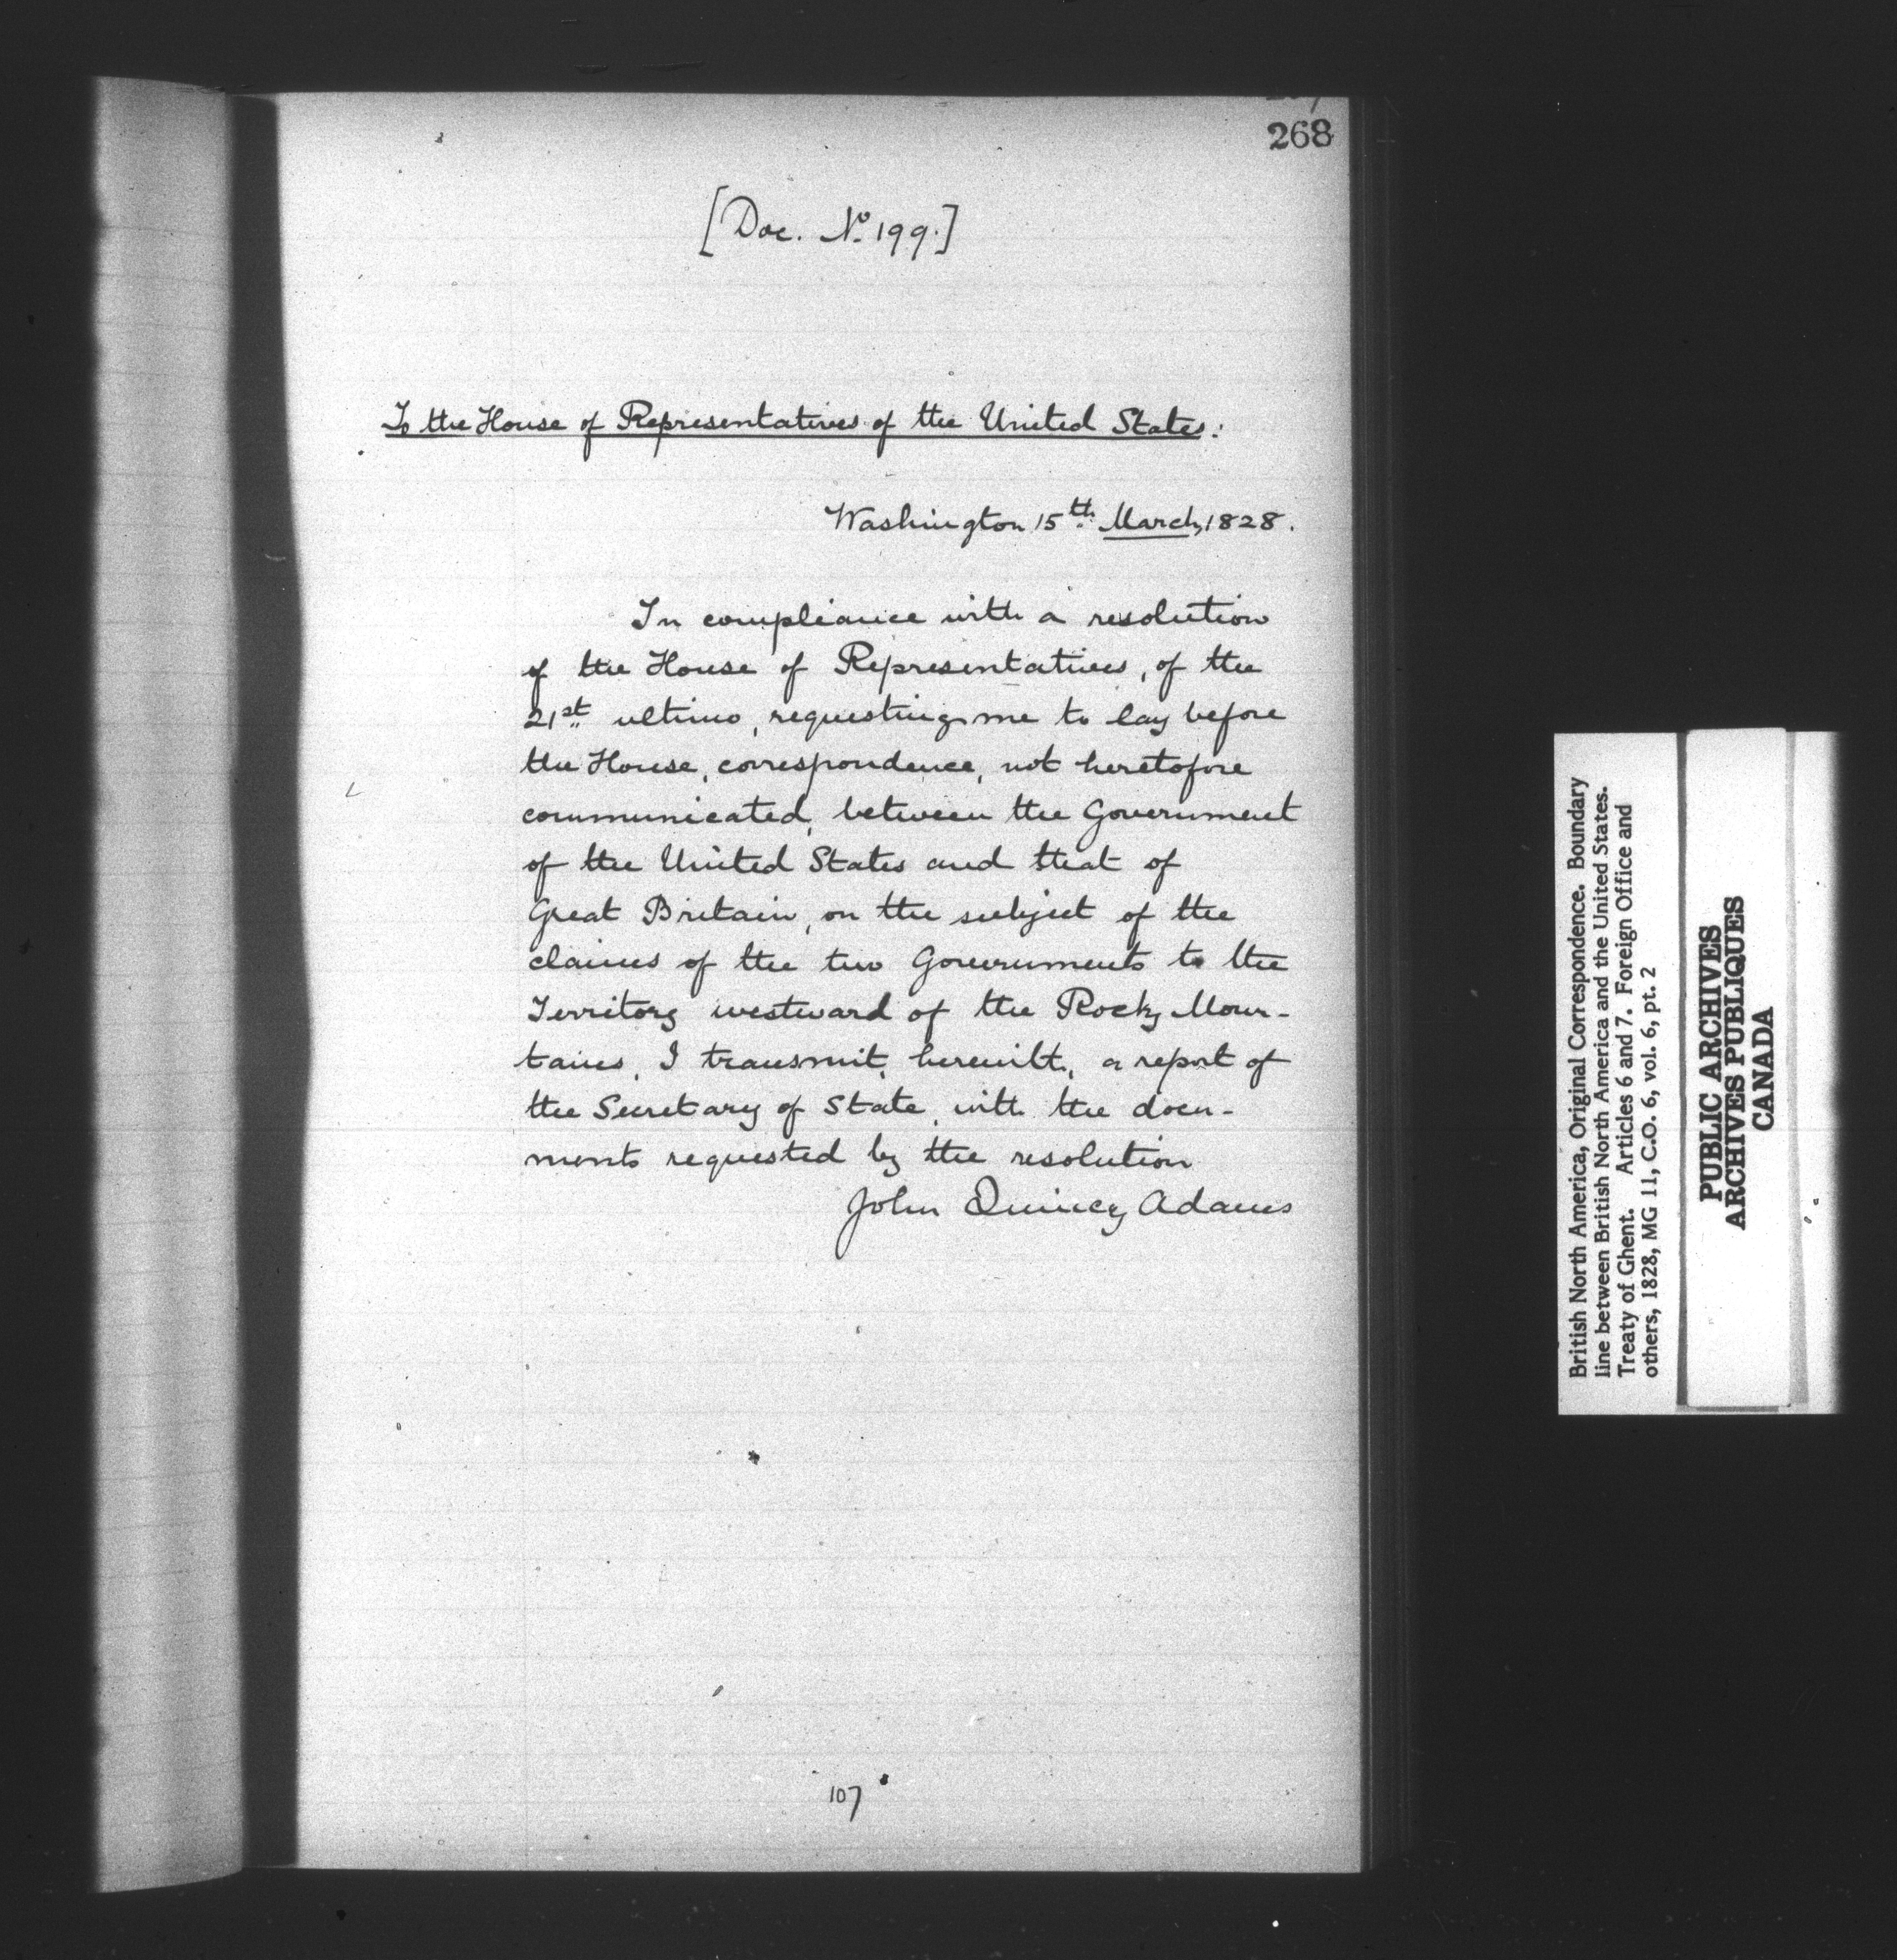 268
[Doc. No. 199.]
To the House of Representatives of the United States:
Washington 15th March, 1828.
In compliance with a resolution
of the House of Representatives, of the
21st ultimo, requesting me to lay before
the House, correspondence, not heretofore
communicated, between the Government
of the United States and that of
Great Britain, on the subject of the
claims of the two Governments to the
Territory westward of the Rocky Moun-
tains, I transmit, herewith, a report of
the Secretary of State, with the docu-
ments requested by the resolution
John Quincy Adams
107
British North America, Original Correspondence. Boundary
line between British North America and the United States.
Treaty of Ghent. Articles 6 and 7. Foreign Office and
others, 1828, MG 11, C.O. 6, vol. 6, pt. 2
PUBLIC ARCHIVES
ARCHIVES PUBLIQUES
CANADA